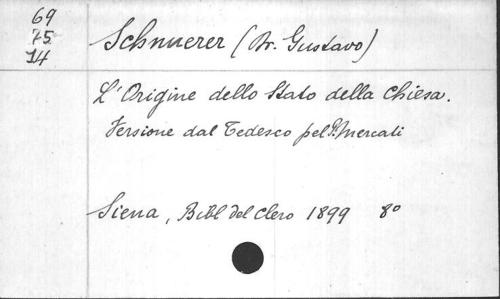 69
75
14
Schnuerer (Dr. Gustavo)
L'Origine dello Stato della Chiesa.
Versione dal Tedesco pel P. Mercati
Siena, Bibl del Clero 1899 8º